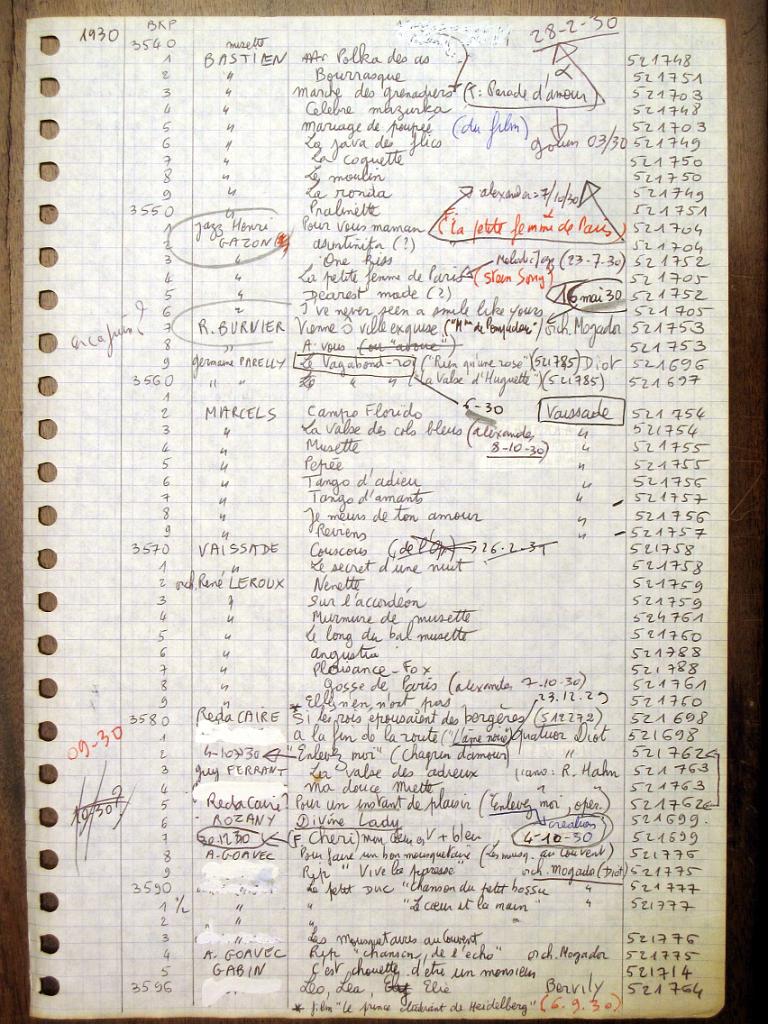 1930 BKP 28-2-30
3540 musette
1 BASTIEN Polka des as 521748
2 " Bourrasque 521751
3 " marche des grenadiers (F: Parade d'amour) 521703
4 " Celebre mazurka 521748
5 " mariage de poupée (du film) 521703
6 " La java des flics 03/30 521749
7 " La coquette 521750
8 " Le moulin 521750
9 " La ronda alexander=7/10/30 521749
3550 " Pralinette 521751
1 jazz Henri Pour vous maman (F: la petite femme de Paris) 521704
2 GAZON (?) 521704
3 " One Kiss (23-7-30) 521752
4 " La petite femme de Paris (Stein Song) 521705
5 " Dearest made (?) 16 mai 30 521752
6 " I've never seen a smile like yours 521705
7 R. BURNIER Vienne ô ville exquise ("Mme de Pompadour") orch. Mogador 521753
8 " A vous (ou "aboue") 521753
9 germaine PARELLY Le Vagabond-roi ("Rien qu'une rose" (521785) Diot 521696
3560 " " Le " " "la valse d'Huguette") (521785) 521697
1 5-30
2 MARCELS Campo Florido Vaissade 521754
3 " La valse des cols bleus (alexander " 521754
4 " Musette 8-10-30) " 521755
5 " Pepée " 521755
6 " Tango d'adieu " 521756
7 " Tango d'amants " 521757
8 " Je meurs de ton amour " 521756
9 " Reviens " 521757
3570 VAISSADE Couscous 26-2-31 521758
1 " Le secret d'une nuit 521758
2 orch. René LEROUX Nenette 521759
3 " Sur l'accordéon 521759
4 " Murmure de musette 521761
5 " Le long du bal musette 521760
6 " angustia 521788
7 " Plaisance-Fox 521788
8 " Gosse de Paris (alexander 7-10-30) 521761
9 " * Elles n'en n'ont pas 23.12.29 521760
3580 Reda CAIRE Si les rois epousaient des bergères (512272) 521698
09-30 1 A la fin de la route ("L'âme noire) Quatuor Diot 521698
2 4-10-30 "Enlevez moi" (chagrin d'amour) " 521762
3 guy FERRANT La valse des adieux piano: R. Hahn 521763
4 " ma douce Miette " " 521763
5 "Reda Caire" Pour un instant de plaisir (Enlevez moi, oper. 521762
6 ROZANY Divine Lady creation 521699
7 30.12.30 (F Cheri) mon V + bleu 4-10-30 521699
8 A. GOAVEC Pour faire un bon mousquetaire (Les musq. au couvent) 521776
9 " Rip "Vive la paresse" orch. Mogador (Diot) 521775
3590 " Le petit Duc "chanson du petit bossu " 521777
1 ½ " " "Le cœur et la main" " 521777
2 " "
3 " Les mousquetaires au couvent 521776
4 A. GOAVEC Rip "chanson de l'echo" orch. Mogador 521775
5 GABIN C'est chouette d'etre un monsieur 521714
3596 Léo, Léa, Elie Bervily 521764
* film "le prince etudiant de Heidelberg" (6.9.30)